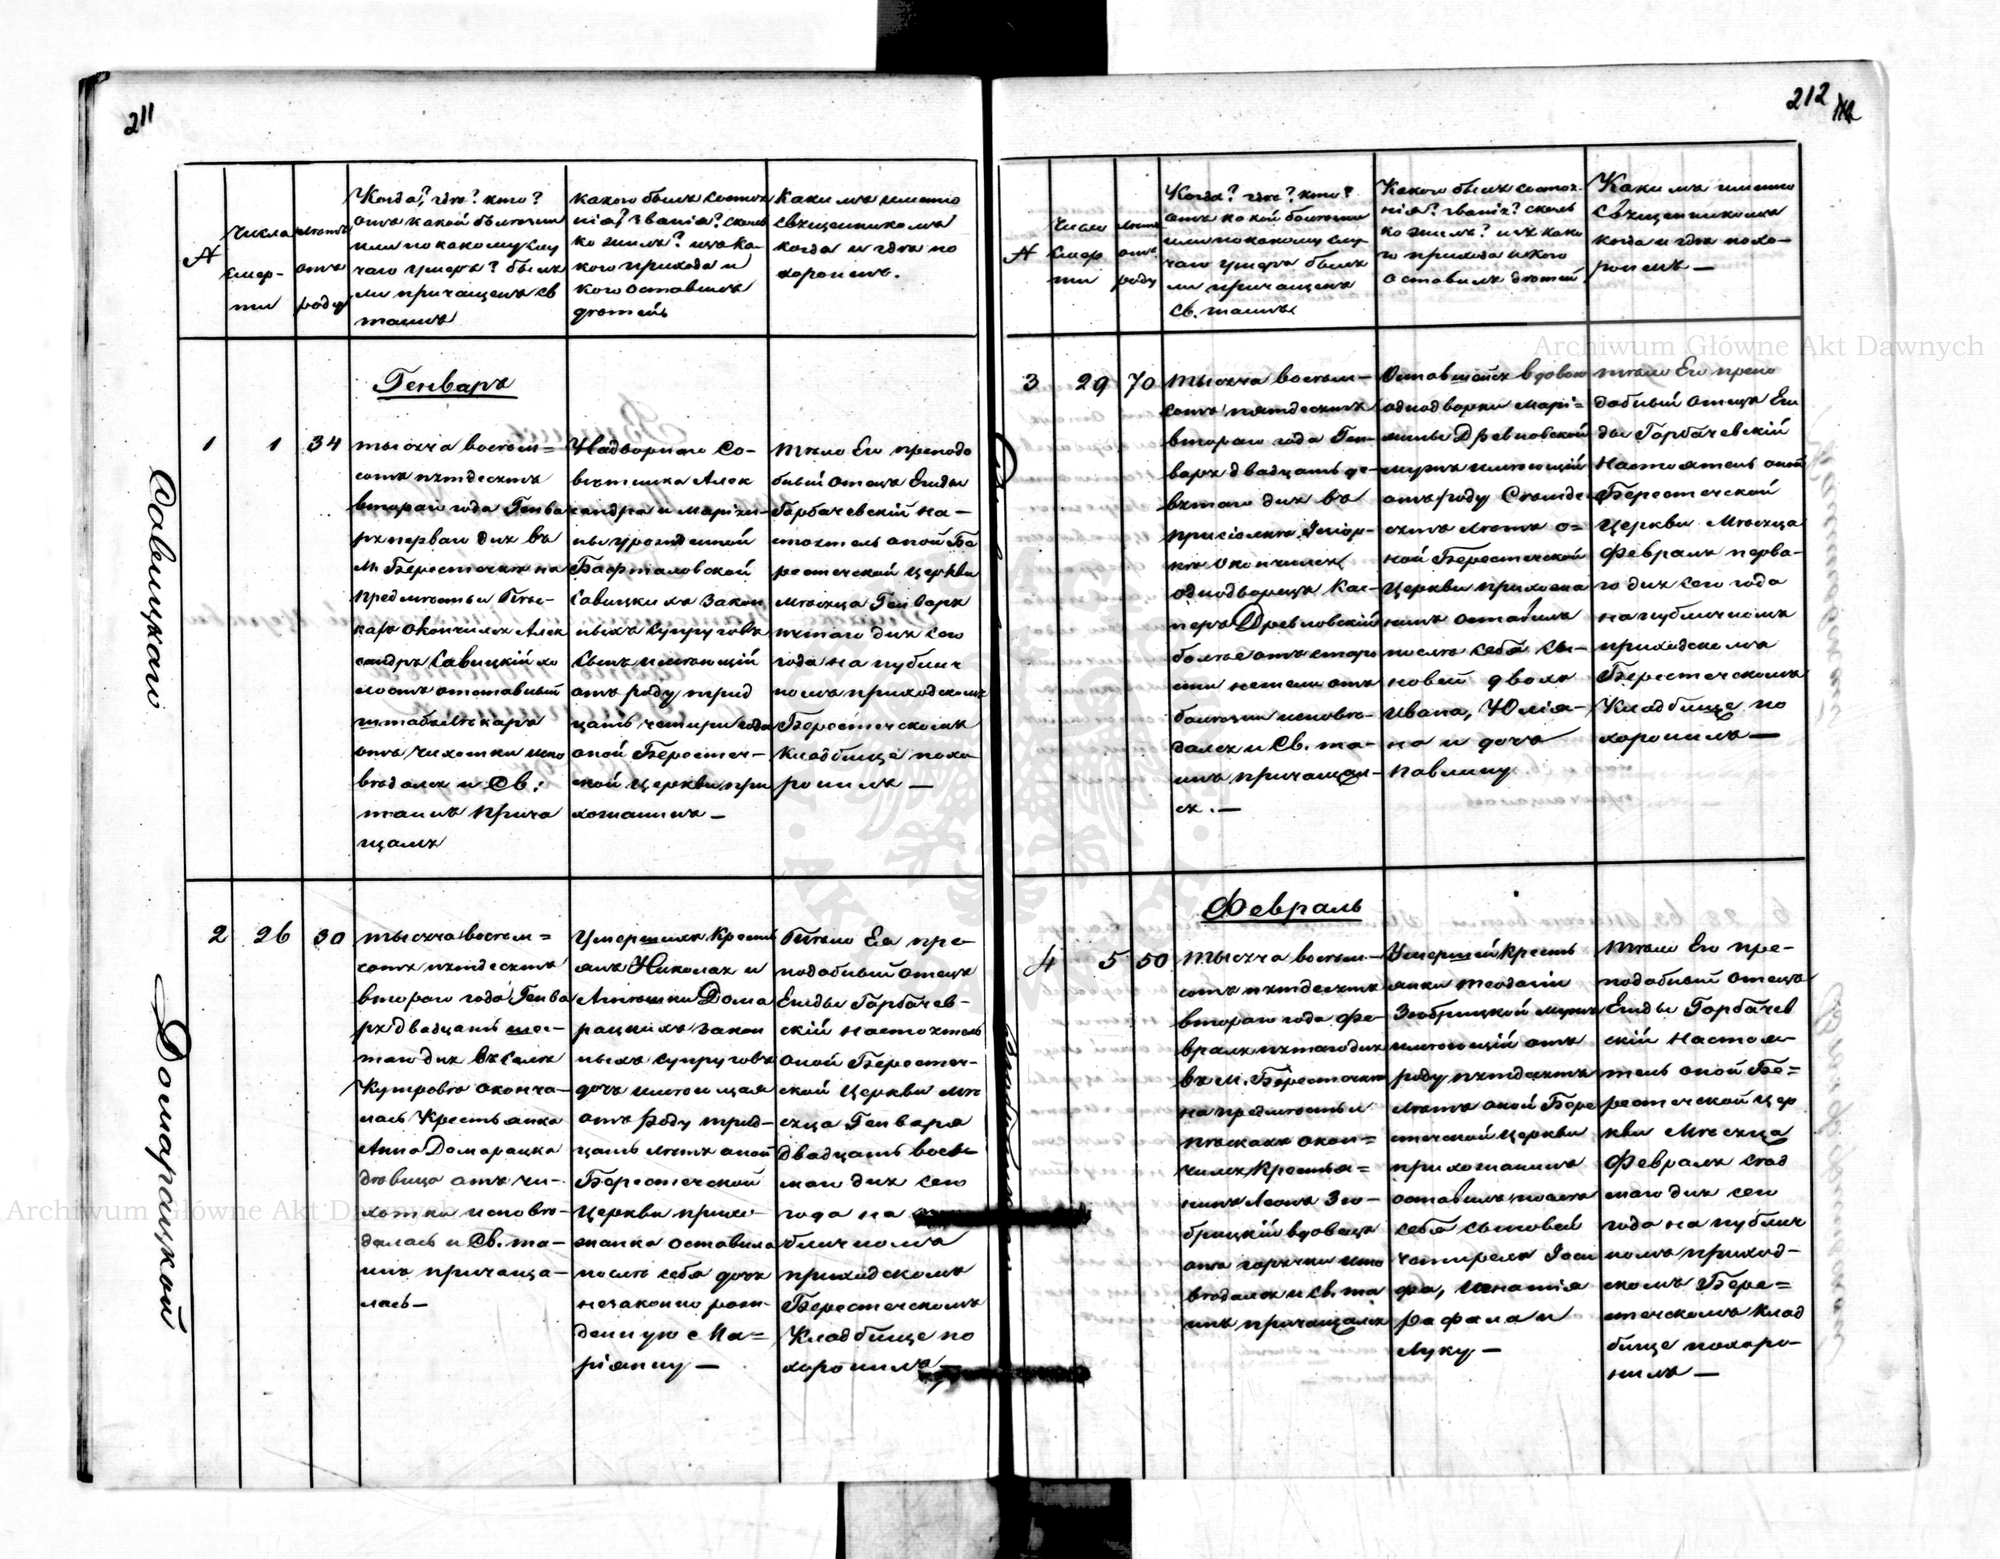 211
№
Числа
Смер-
ти
Лета
отъ
роду
Когда? где? кто?
отъ какой болезни
или по какому слу
чаю умеръ? былъ
ли причащенъ св
таинъ
какого былъ состоя
нія? званія? сколь
ко жилъ? изъ ка-
кого прихода и
кого оставилъ
детей
Какимъ именно
священникомъ
когда и где по
хороненъ.
Савицкаго
Генварь
1
1
34
тысяча восем=
сотъ пятдесятъ
втораго года Генва
ря перваго дня въ
М. Берестечке на
предместьи
окончился Алек
сандръ Савицкій хо
лостъ отставный
штабълекаръ
отъ чихотки испо
ведался и Св:
таинъ прича
щался
Надворнаго Со-
ветника Алек
сандра и Маріян-
ны урожденной
Савицкихъ закон
ныхъ супруговъ
сынъ имеющій
отъ роду трид
цать четыри года
оной Берестеч-
ской церкви при
хожанинъ —
тело Его преподо
бный отецъ Егиды
Горбачевскій на-
стоятель оной Бе
рестечской церкви
месяца Генваря
пятаго дня сего
года на публич
номъ приходскомъ
Берестечскомъ
Кладбище похо
ронилъ —
Домарацкой
2
26
30
тысяча восем=
сотъ пятдесятъ
втораго года Генва
ря двадцать шес-
таго дня въ селе
Кутрове оконча-
лась Крестьянка
Анна Домарацка
девица отъ чи-
хотки испове-
далась и Св. та-
инъ причаща-
лась —
Умершихъ Кресть
янъ Николая и
Дома
рацкихъ закон
ныхъ супруговъ
дочь имеющая
отъ роду трид-
цать летъ оной
Берестечской
церкви прихо-
жанка оставила
после себя дочь
незаконно рож-
денную Ма=
ріянну —
Тело Ея пре-
подобный отецъ
Егиды Горбачев-
скій настоятель
оной Берестеч-
ской церкви ме
сяца Генваря
двадцать вось
маго дня сего
года на
бличномъ
приходскомъ
Берестечскомъ
Кладбище по
хоронилъ —
212
№
Число
Смер
ти
Лета
отъ
роду
Когда? где? кто?
отъ какой болезни
или по какому слу
чаю умеръ былъ
ли причащенъ
Св. таинъ
Какого былъ состоя-
нія? званія? сколь
ко жилъ? изъ како
го прихода и кого
оставилъ детей
Какимъ именно
Священникомъ
когда и где похо-
роненъ —
3
29
70
тысяча восем—
сотъ пятдесятъ
втораго года Ген-
варя двадцать де-
вятаго дня въ
окончился
однодворецъ Кас-
перъ Древновскій
более отъ старо
сти нежели отъ
болезни испове-
дался и Св. та-
инъ причащал-
ся. —
Оставшойся вдовою
однодворки Марі=
янны Древновской
мужъ имеющій
отъ роду Семьде
сятъ летъ о=
ной Берестечской
церкви прихожа
нинъ оставилъ
после себя сы-
новей двохъ
Ивана, Юлія-
на и дочь
Павлину
тело Его препо
добный отецъ Еги
ды Горбачевскій
Настоятель оной
Берестечской
церкви месяца
Февраля перва-
го дня сего года
на публичномъ
приходскомъ
Берестечскомъ
Кладбище по
хоронилъ —
Февраль
4
5
50
тысяча восем—
сотъ пятдесятъ
втораго года Фе-
враля пятаго дня
въ М. Берестечке
на предместьи
Пескахъ окон=
чился Крестья=
нинъ Леонъ Зго-
брицкій вдовецъ
отъ горячки испо
ведался и Св. та
инъ причащался
Умершей кресть
янки Теодосіи
Згобрицкой мужъ
имеющій отъ
роду пятдесятъ
летъ оной Бере
стечской церкви
прихожанинъ
оставилъ после
себя сыновей
четырехъ Іоси
фа, Игнатія
Рафала и
Луку —
тело Его пре-
подобный отецъ
Егиды Горбачев
скій Настоя-
тель оной Бе=
рестечской цер
кви Месяца
Февраля сед
маго дня сего
года на публич
номъ приход-
скомъ Бере=
стечскомъ Клад
бище похоро-
нилъ —
Archiwum Główne Akt Dawnych
Archiwum Główne Akt Dawnych